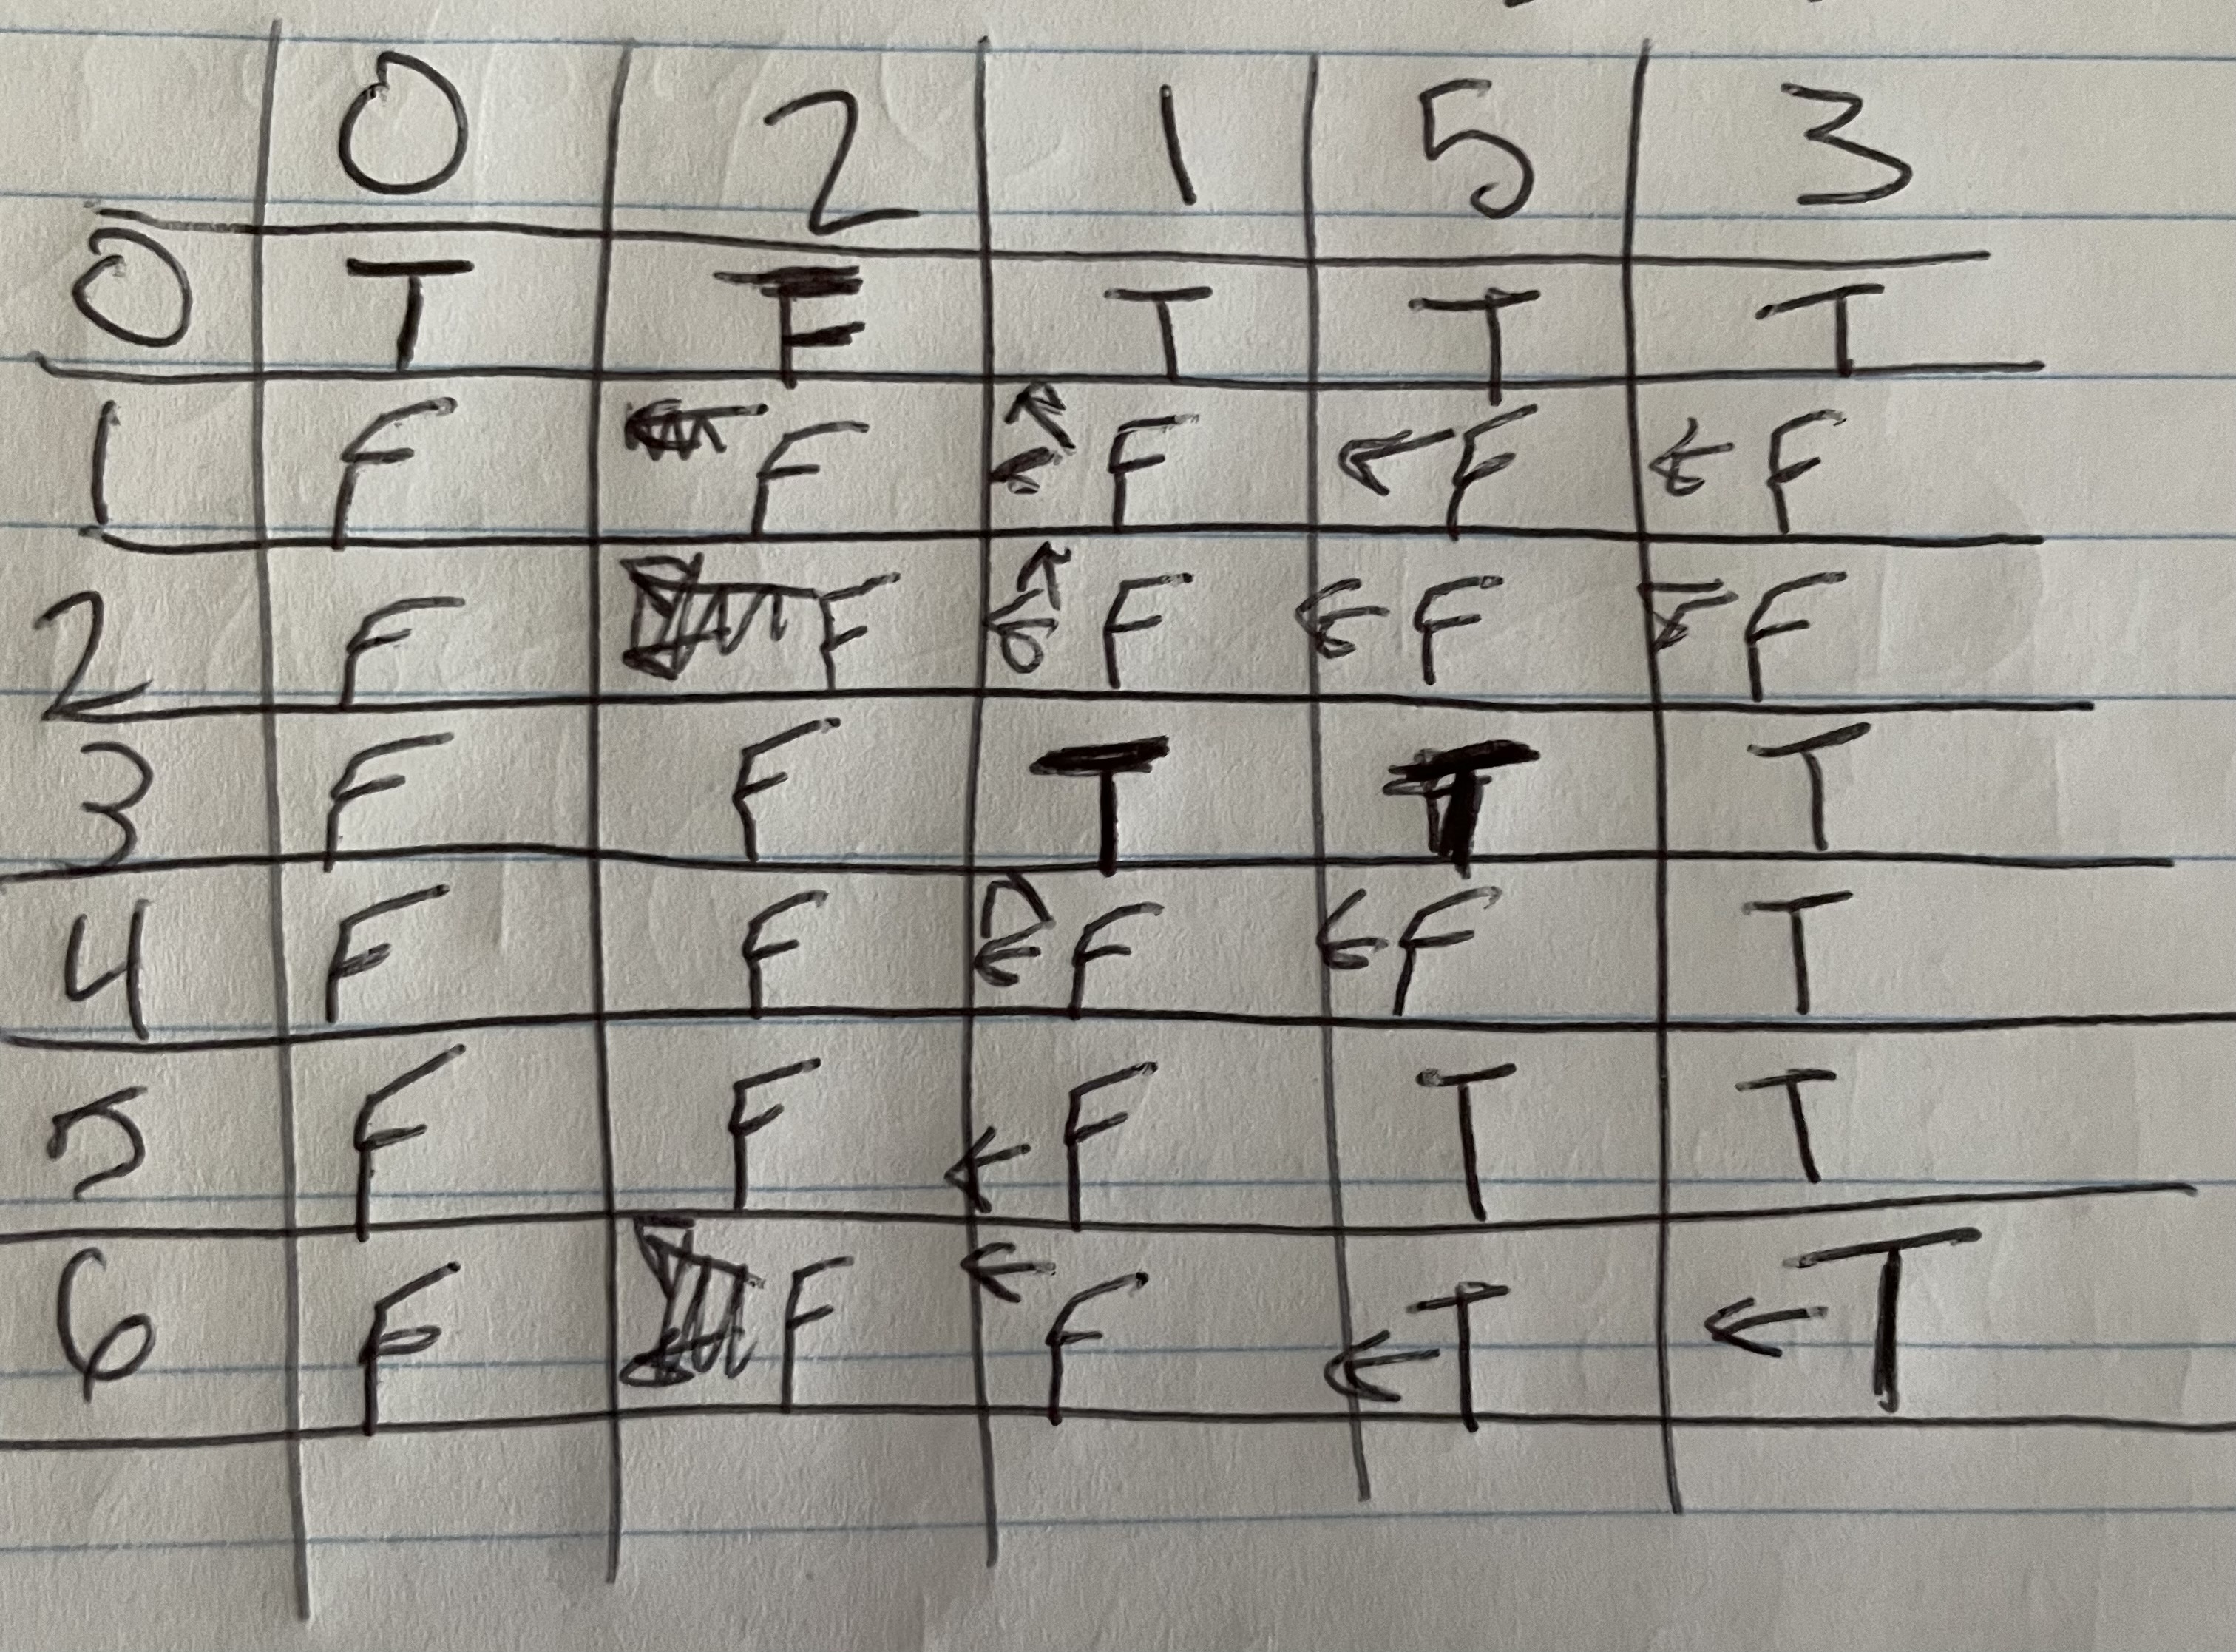 0 2 1 5 3
0 T F T T T
1 F F F F F
2 F F F F F
3 F F T T T
4 F F F F T
5 F F F T T
6 F F F T T